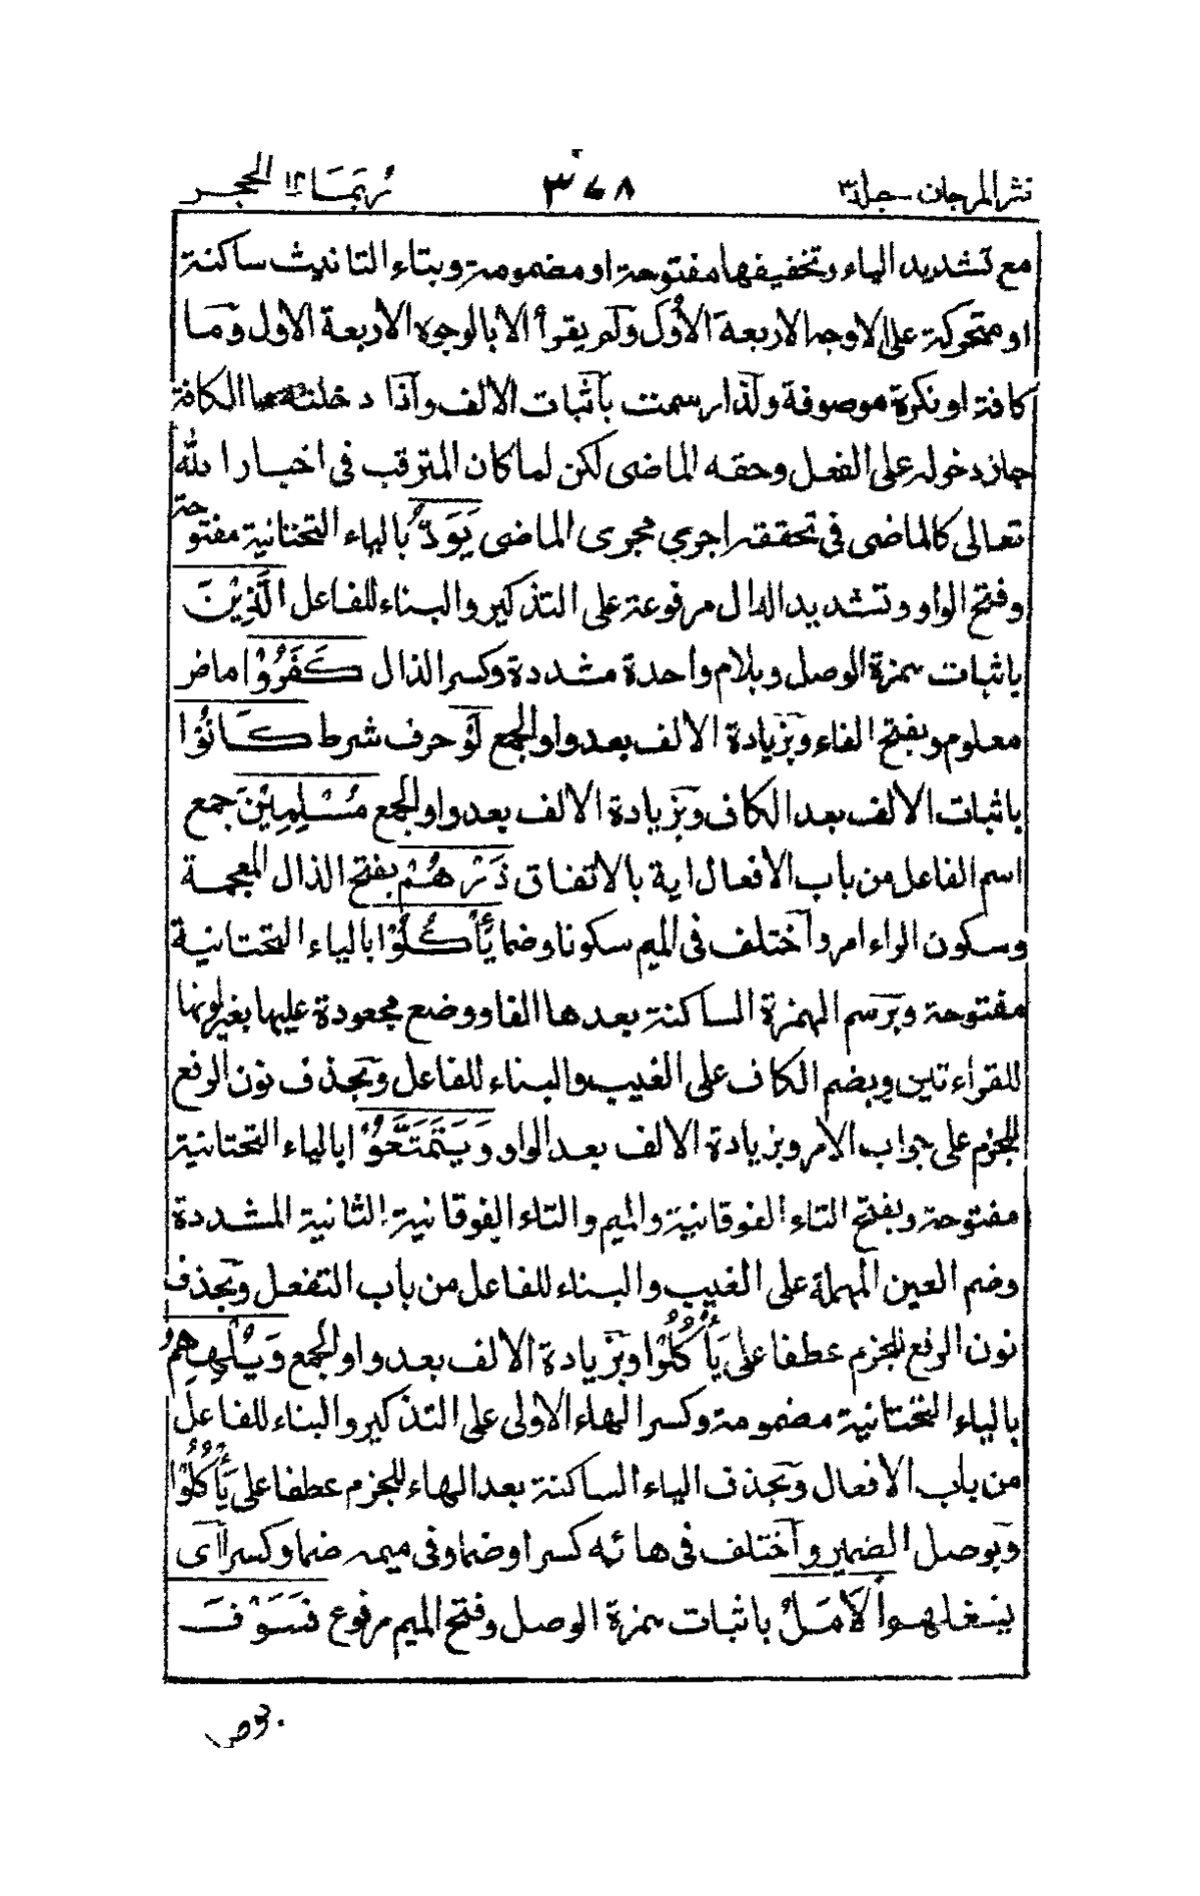 نثر المرجان - جلد ٣ ٣٧٨ رُبَمَا ١٤ الحجر
مع تشديد الياء وتخفيفها مفتوحة او مضمومة وبتاء التانيث ساكنة
او متحركة على الاوجه الاربعة الأُوَل ولم يقرأ الا بالوجوه الاربعة الاول وما
كافة او نكرة موصوفة ولذا رسمت بأثبات الالف واذا دخلته ما الكافة
جاز دخوله على الفعل وحقه الماضى لكن لما كان المترقب فى اخبار الله
تعالى كالماضى فى تحققه اجري مجرى الماضى يَوَدُّ بالياء التحتانية مفتوحة
وفتح الواو وتشديد الدال مرفوعة على التذكير والبناء للفاعل الَّذِيْنَ
باثبات همزة الوصل وبلام واحدة مشددة وكسر الذال كَفَرُوْا ماض
معلوم وبفتح الفاء وبزيادة الالف بعد واو الجمع لَوْ حرف شرط كَانُوْا
باثبات الالف بعد الكاف وبزيادة الالف بعد واو الجمع مُسْلِمِيْنَ جمع
اسم الفاعل من باب الافعال اية بالاتفاق ذَرْهُمْ بفتح الذال المعجمة
وسكون الراء امر واختلف فى الميم سكونا وضما يَأْكُلُوْا بالياء التحتانية
مفتوحة وبرسم الهمزة الساكنة بعدها الفا ووضع مجعودة عليها بغير لونها
للقراءتين وبضم الكاف على الغيب والبناء للفاعل وبحذف نون الرفع
للجزم على جواب الامر وبزيادة الالف بعد الواو وَيَتَمَتَّعُوْا بالياء التحتانية
مفتوحة وبفتح التاء الفوقانية والميم والتاء الفوقانية الثانية المشددة
وضم العين المهملة على الغيب والبناء للفاعل من باب التفعل وبحذف
نون الرفع للجزم عطفا على يَأْكُلُوْا وبزيادة الالف بعد واو الجمع وَيُلْهِهِمُ
بالياء التحتانية مضمومة وكسر الهاء الاولى على التذكير والبناء للفاعل
من باب الافعال وبحذف الياء الساكنة بعد الهاء للجزم عطفا على يَأْكُلُوْا
وبوصل الضمير واختلف فى هائه كسرا وضما وفى ميمه ضما وكسرا اى
يشغلهم الْأَمَلُ باثبات همزة الوصل وفتح الميم مرفوع فَسَوْفَ